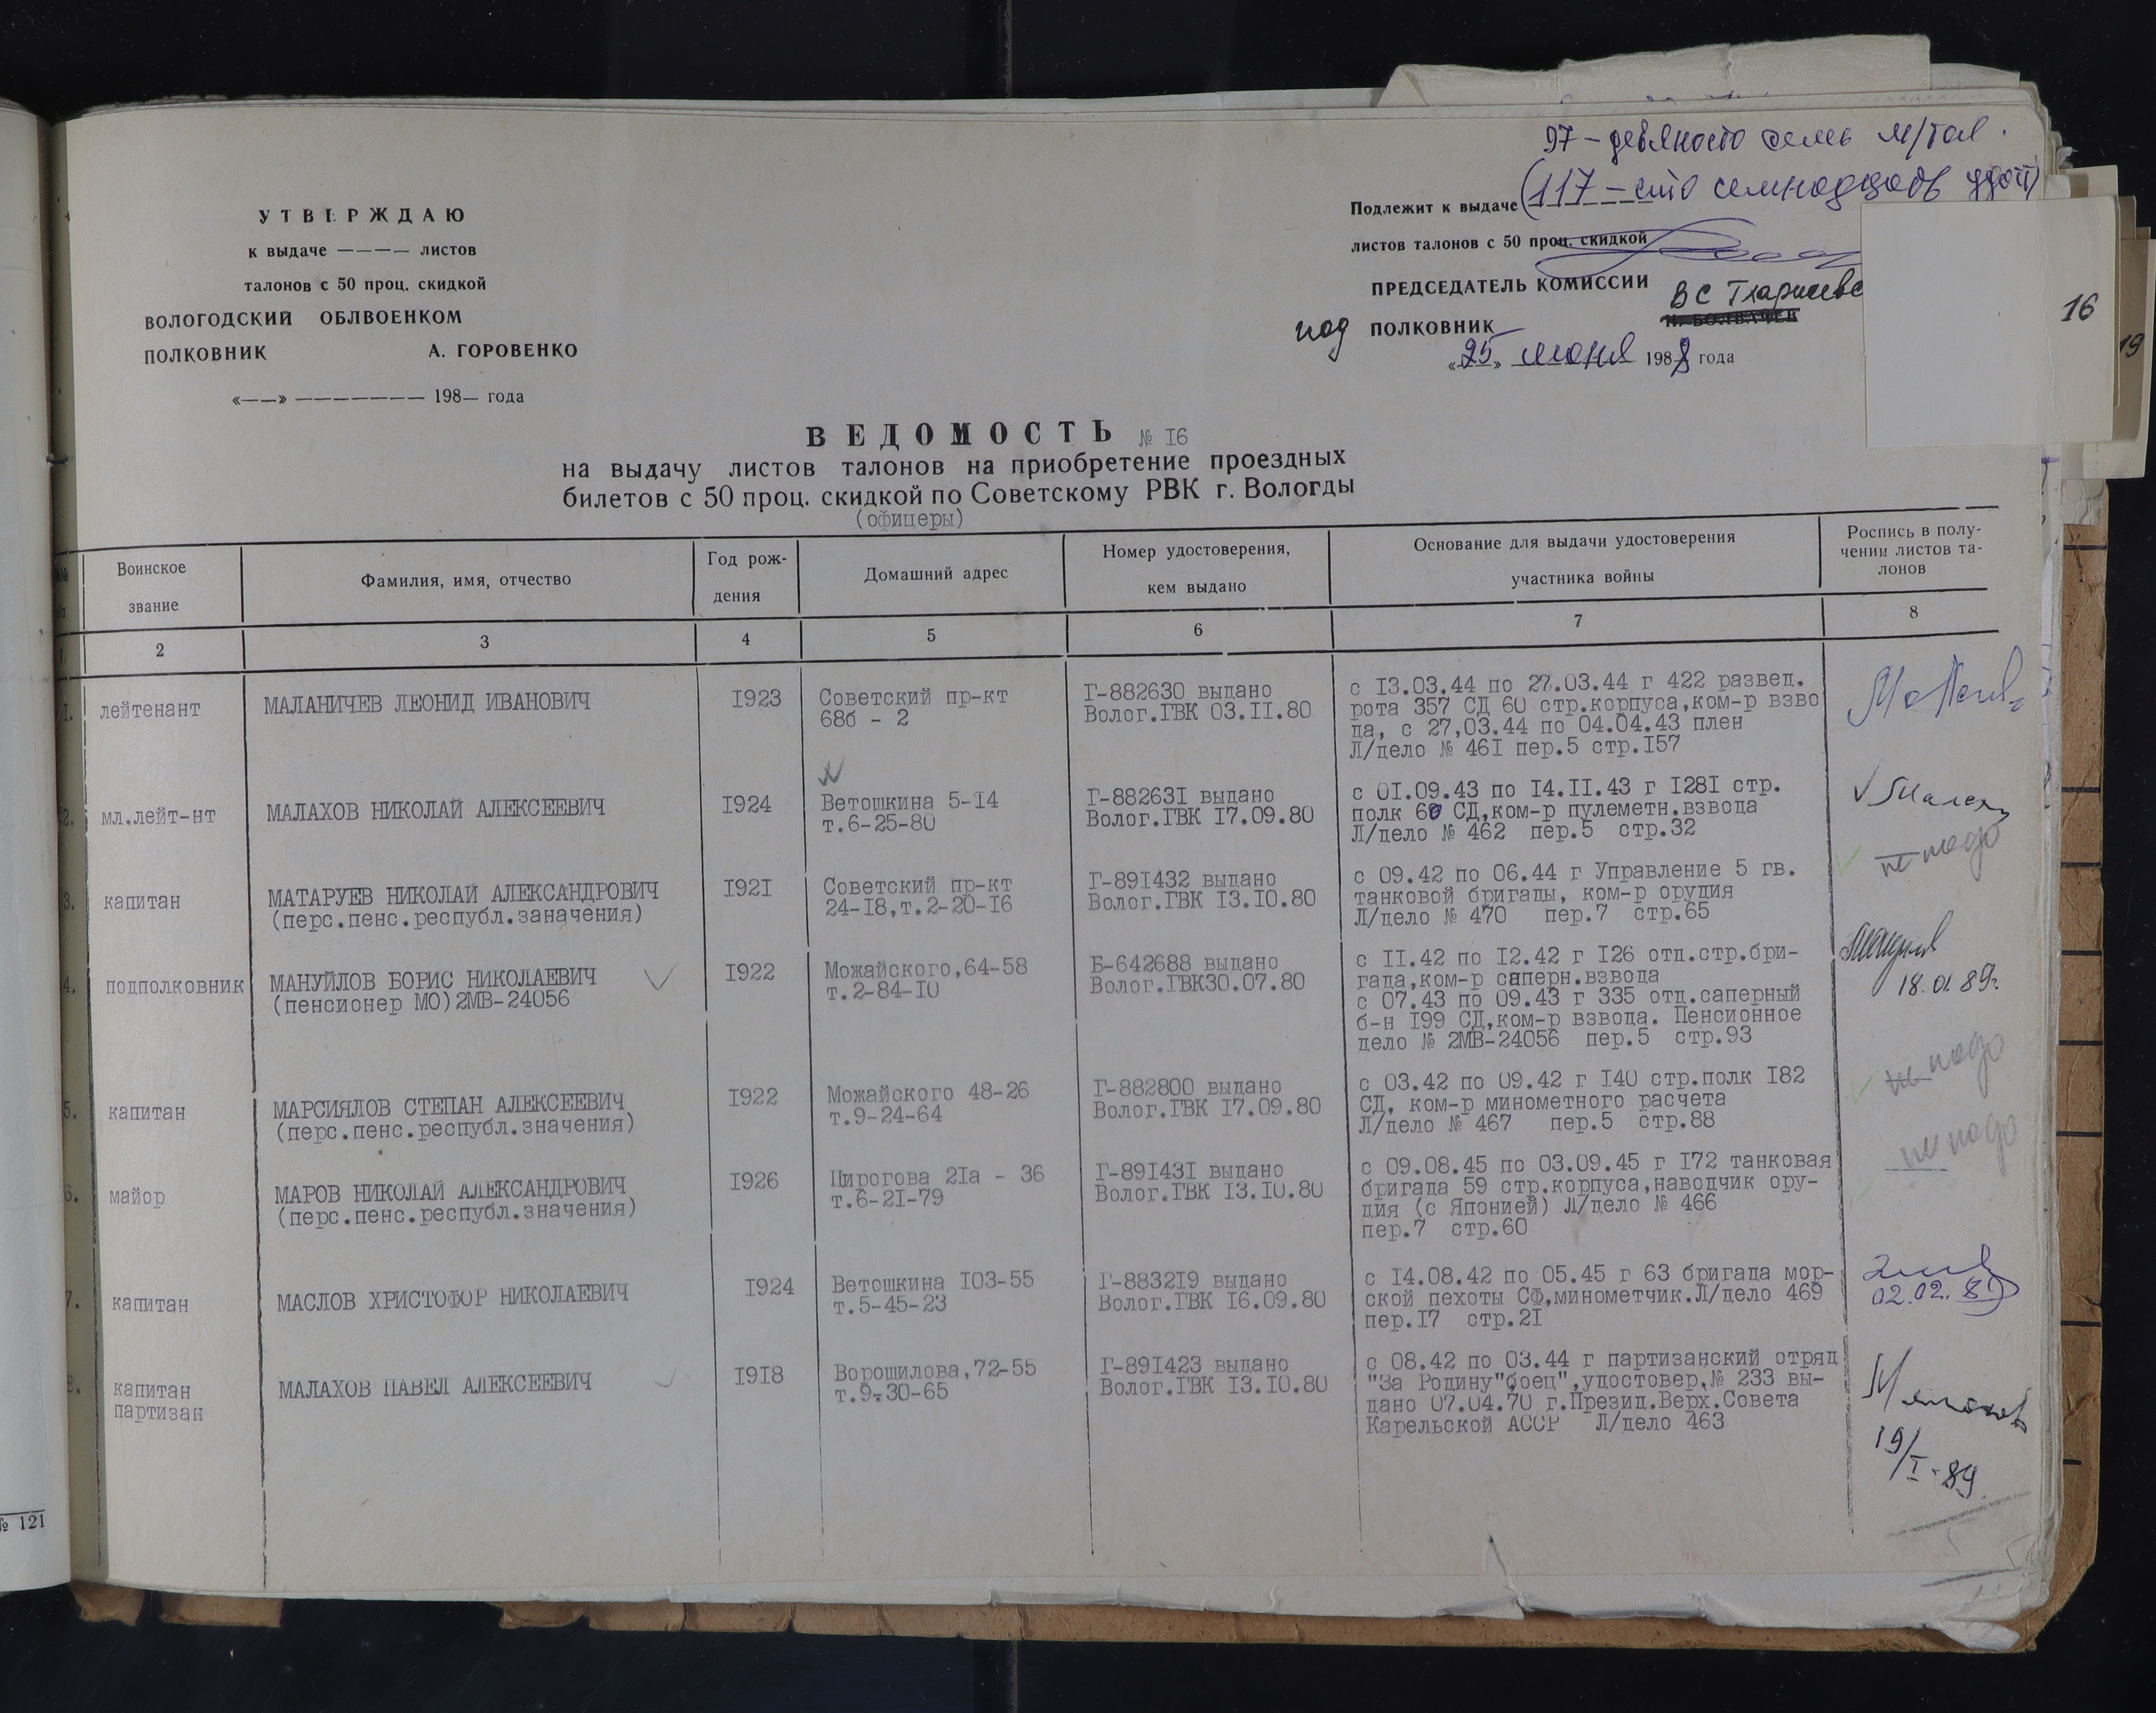 97 – девяносто семь
УТВЕРЖДАЮ
к выдаче ———— листов
талонов с 50 проц. скидкой
ВОЛОГОДСКИЙ ОБЛВОЕНКОМ
ПОЛКОВНИК А. ГОРОВЕНКО
«——» ——————— 198— года
Подлежит к выдаче (117 – сто семнадцать
листов талонов с 50 проц. скидкой
ПРЕДСЕДАТЕЛЬ КОМИССИИ
под ПОЛКОВНИК
«25» июня 1988 года
16
19
ВЕДОМОСТЬ № 16
на выдачу листов талонов на приобретение проездных
билетов с 50 проц. скидкой по Советскому РВК г. Вологды
(офицеры)
Воинское
звание
Фамилия, имя, отчество
Год рож-
дения
Домашний адрес
Номер удостоверения,
кем выдано
Основание для выдачи удостоверения
участника войны
Роспись в полу-
чении листов та-
лонов
2 3 4 5 6 7 8
1. лейтенант
МАЛАНИЧЕВ ЛЕОНИД ИВАНОВИЧ
1923
Советский пр-кт
68б - 2
Г-882630 выдано
Волог.ГВК 03.11.80
с 13.03.44 по 27.03.44 г 422 развед.
рота 357 СД 60 стр.корпуса,ком-р взво
да, с 27,03.44 по 04.04.43 плен
Л/дело № 461 пер.5 стр.157
2. мл.лейт-нт
МАЛАХОВ НИКОЛАЙ АЛЕКСЕЕВИЧ
1924
Ветошкина 5-14
т.6-25-80
Г-882631 выдано
Волог.ГВК 17.09.80
с 01.09.43 по 14.11.43 г 1281 стр.
полк 60 СД,ком-р пулеметн.взвода
Л/дело № 462 пер.5 стр.32
3. капитан
МАТАРУЕВ НИКОЛАЙ АЛЕКСАНДРОВИЧ
(перс.пенс.республ.заначения)
1921
Советский пр-кт
24-18,т.2-20-16
Г-891432 выдано
Волог.ГВК 13.10.80
с 09.42 по 06.44 г Управление 5 гв.
танковой бригады, ком-р орудия
Л/дело № 470 пер.7 стр.65
не надо
4. подполковник
МАНУЙЛОВ БОРИС НИКОЛАЕВИЧ
(пенсионер МО)2МВ-24056
1922
Можайского,64-58
т.2-84-10
Б-642688 выдано
Волог.ГВК30.07.80
с 11.42 по 12.42 г 126 отд.стр.бри-
гада,ком-р саперн.взвода
с 07.43 по 09.43 г 335 отд.саперный
б-н 199 СД,ком-р взвода. Пенсионное
дело № 2МВ-24056 пер.5 стр.93
18.01.89г.
5. капитан
МАРСИЯЛОВ СТЕПАН АЛЕКСЕЕВИЧ
(перс.пенс.республ.значения)
1922
Можайского 48-26
т.9-24-64
Г-882800 выдано
Волог.ГВК 17.09.80
с 03.42 по 09.42 г 140 стр.полк 182
СД, ком-р минометного расчета
Л/дело № 467 пер.5 стр.88
не надо
6. майор
МАРОВ НИКОЛАЙ АЛЕКСАНДРОВИЧ
(перс.пенс.республ.значения)
1926
Пирогова 21а - 36
т.6-21-79
Г-891431 выдано
Волог.ГВК 13.10.80
с 09.08.45 по 03.09.45 г 172 танковая
бригада 59 стр.корпуса,наводчик ору-
дия (с Японией) Л/дело № 466
пер.7 стр.60
не надо
7. капитан
МАСЛОВ ХРИСТОФОР НИКОЛАЕВИЧ
1924
Ветошкина 103-55
т.5-45-23
Г-883219 выдано
Волог.ГВК 16.09.80
с 14.08.42 по 05.45 г 63 бригада мор-
ской пехоты СФ,минометчик.Л/дело 469
пер.17 стр.21
капитан
партизан
МАЛАХОВ ПАВЕЛ АЛЕКСЕЕВИЧ
1918
Ворошилова,72-55
т.9-30-65
Г-891423 выдано
Волог.ГВК 13.10.80
с 08.42 по 03.44 г партизанский отряд
"За Родину"боец",удостовер.№ 233 вы-
дано 07.04.70 г.Презид.Верх.Совета
Карельской АССР Л/дело 463
19/I-89
№ 121